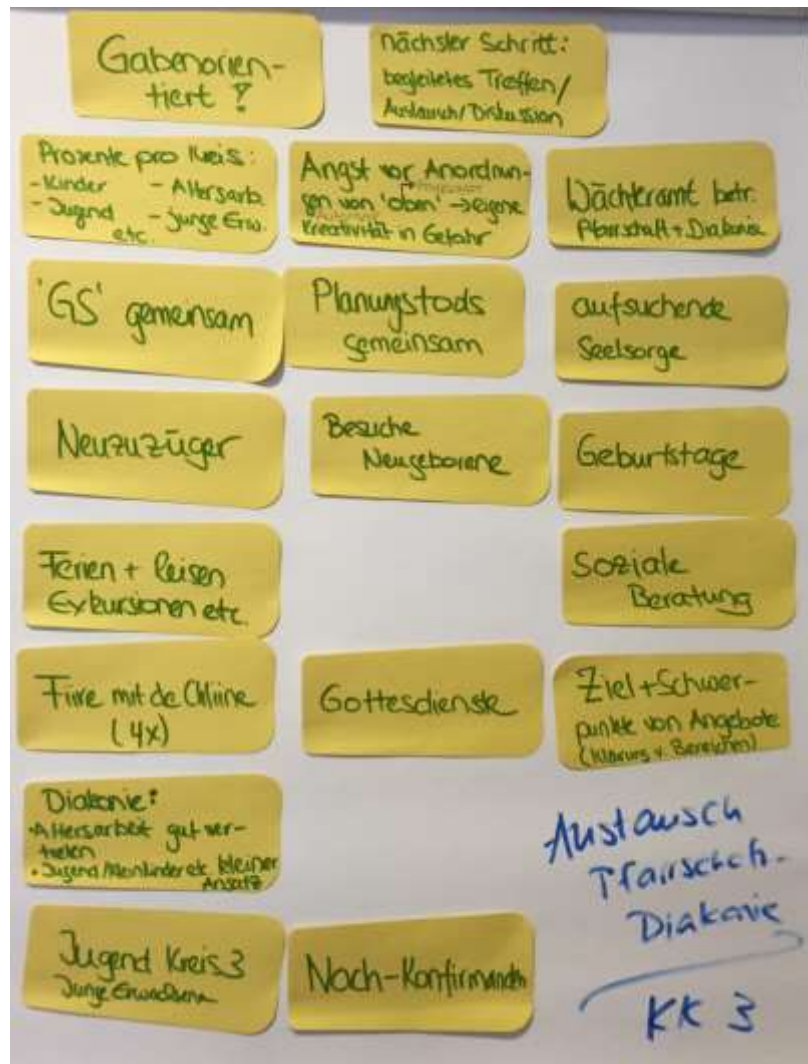 Gabenorien-
tiert !
nächster Schritt:
begleitetes Treffen/
Austausch/Diskussion
Prozente pro Kreis:
- Kinder - Altersarb.
- Jugend - junge Erw.
etc.
Angst vor Anordnun-
gen von 'oben' → eigene
Kreativität in Gefahr
Wächteramt betr.
Pfarrschaft + Diakonie
'GS' gemeinsam
Planungstools
gemeinsam
aufsuchende
Seelsorge
Neuzuzüger
Besuche
Neugeborene
Geburtstage
Ferien + Reisen
Exkursionen etc.
Soziale
Beratung
Fiire mit de Chliine
(4x)
Gottesdienste
Ziel + Schwer-
punkte von Angebote
(Klärung v. Bereichen)
Diakonie:
• Altersarbeit gut ver-
treten
• Jugend/Kleinkinder etc. kleiner
Ansatz
Jugend Kreis 3
Junge Erwachsene
Noch-Konfirmanden
Austausch
Pfarrschaft-
Diakonie
KK 3